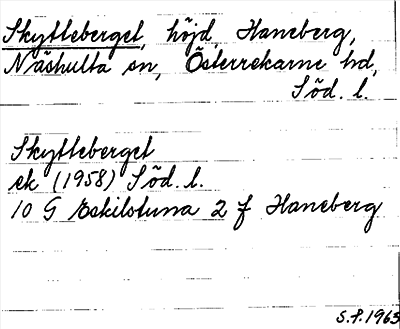 Skytteberget, höjd, Haneberg,
Näshulta sn, Österrekarne hd,
Söd. l.
Skytteberget
ek (1958) Söd. l.
10 G Eskilstuna 2 f Haneberg
S.P. 1963